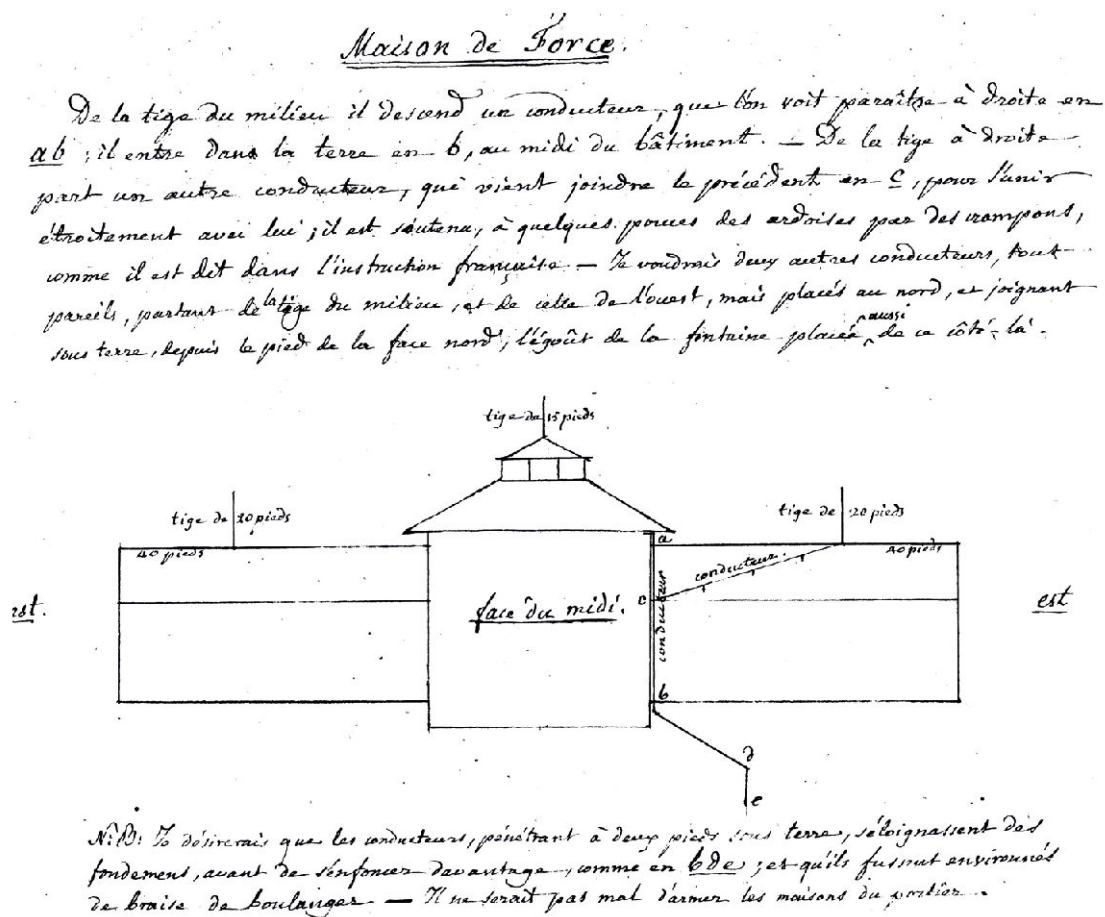 Maison de Force.
De la tige du milieu il descend un conducteur, que l'on voit paraître à droite en
ab ; il entre dans la terre en b, au midi du bâtiment. — De la tige à droite
part un autre conducteur, qui vient joindre le précédent en c, pour s'unir
étroitement avec lui ; il est soutenu, à quelques pouces des ardoises par des crampons,
comme il est dit dans l'instruction française. — Je voudrais deux autres conducteurs, tout
pareils, partant de la tige du milieu, et de celle de l'ouest, mais placés au nord, et joignant
sous terre, depuis le pied de la face nord, l'égoût de la fontaine placée aussi de ce côté-là.
tige de 15 pieds
tige de 20 pieds
tige de 20 pieds
40 pieds
a
40 pieds
conducteur.
est.
face du midi.
c
conducteur
est
b
d
e
N.B: Je désirerais que les conducteurs, pénétrant à deux pieds sous terre, s'éloignassent des
fondemens, avant de s'enfoncer davantage, comme en bde ; et qu'ils fussent environnés
de braise de boulanger — Il ne serait pas mal d'armer les maisons du portier.